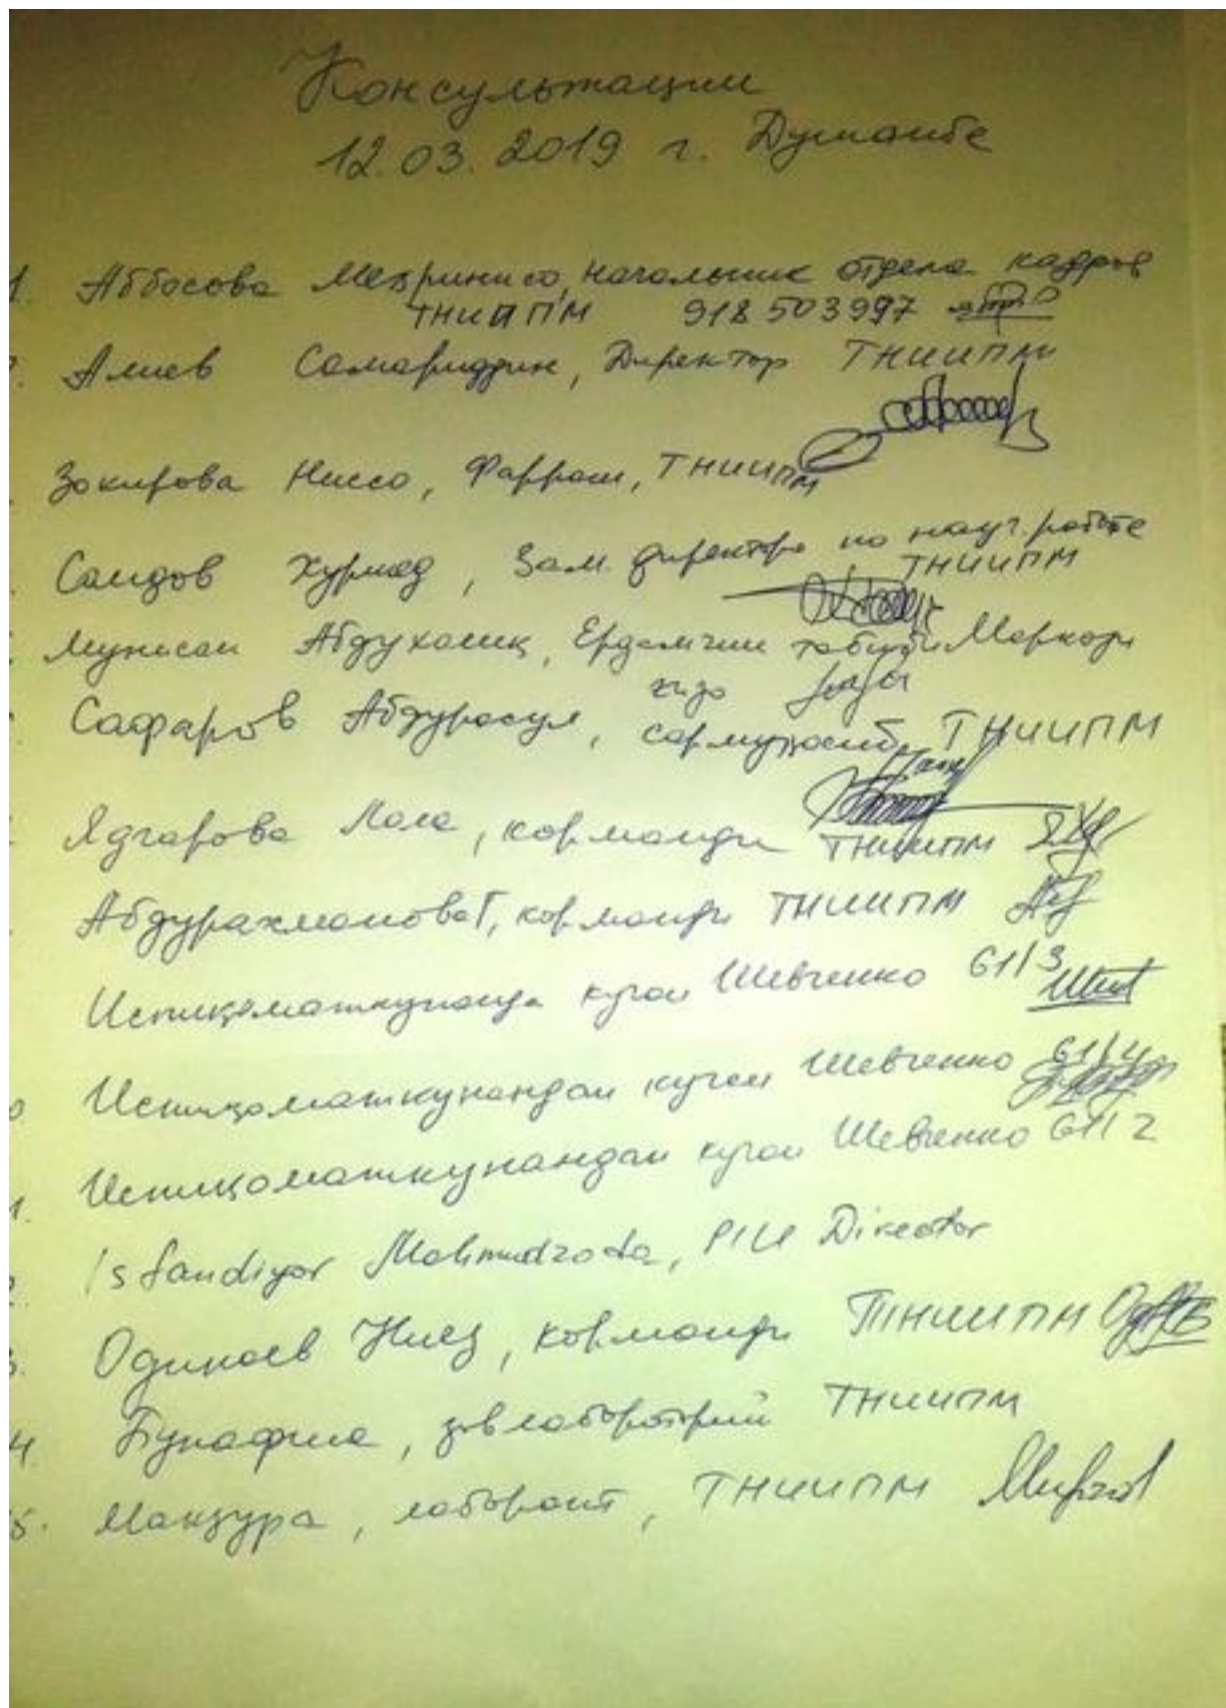 Консультации
12.03.2019 г. Душанбе
1. Аббосова Мехринисо, начальник отдела кадров
ТНИИПМ 918 503997
Алиев Самариддин, Директор ТНИИПМ
Зокирова Ниссо, Фаррош, ТНИИПМ
Саидов Хуршед, Зам. директора по науч. работе
ТНИИПМ
Мунисаи Абдухолиқ, Маркази
ғизо
Сафаров Абдурасул, ТНИИПМ
Ядгарова Лола, корманди ТНИИПМ
Абдурахманова Г, корманди ТНИИПМ
Истиқоматкунанда кучаи Шевченко 61/3
Истиқоматкунандаи кучаи Шевченко 61/4
Истиқоматкунандаи кучаи Шевченко 61/2
Isfandiyor Mahmudzoda, PIU Director
Одинаев Нияз, корманди ТНИИПМ
4. Бунафша, завлабораторий ТНИИПМ
5. Манзура, лаборант, ТНИИПМ